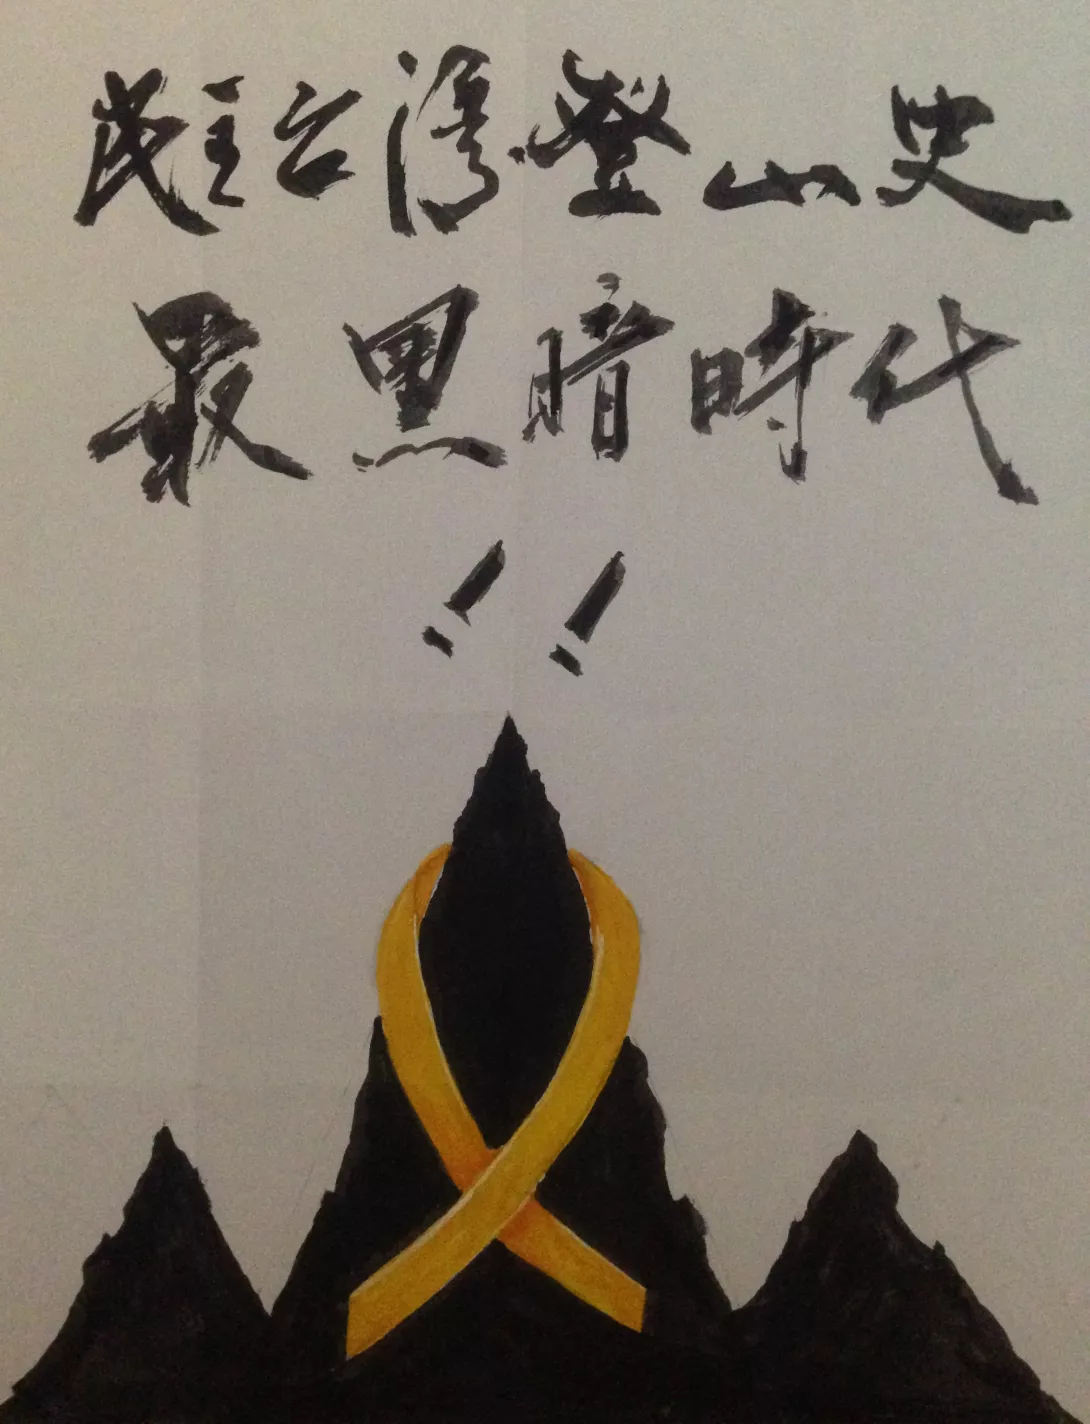 民主台灣登山史
最黑暗時代
!!